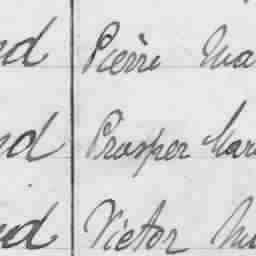 nd Pierre Ma
nd Prosper Mar
nd Victor M